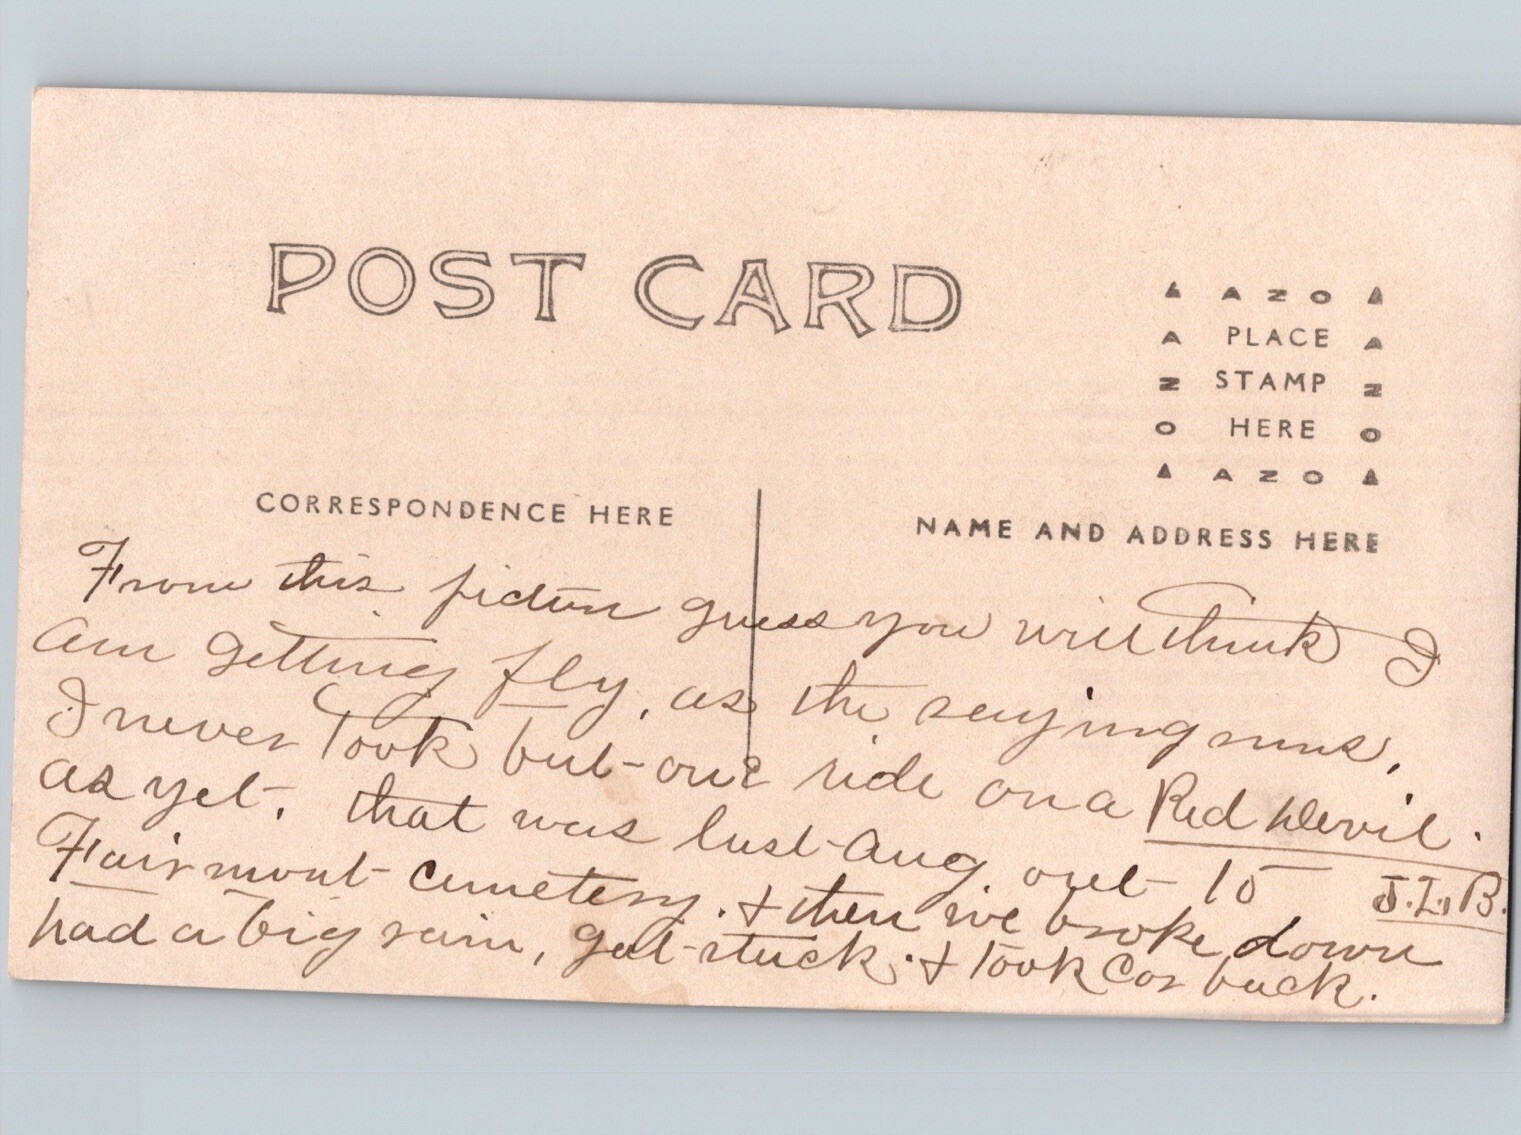 POST CARD
▲ AZO ▲
A PLACE A
N STAMP N
O HERE O
▲ AZO ▲
CORRESPONDENCE HERE
NAME AND ADDRESS HERE
From this picture guess you will think I
am getting fly, as the saying runs,
I never took but one ride on a Red Devil.
as yet. that was last Aug. out to
Fairmount cemetery. & then we broke down
had a big rain, got stuck. & took car back.
J.L.B.